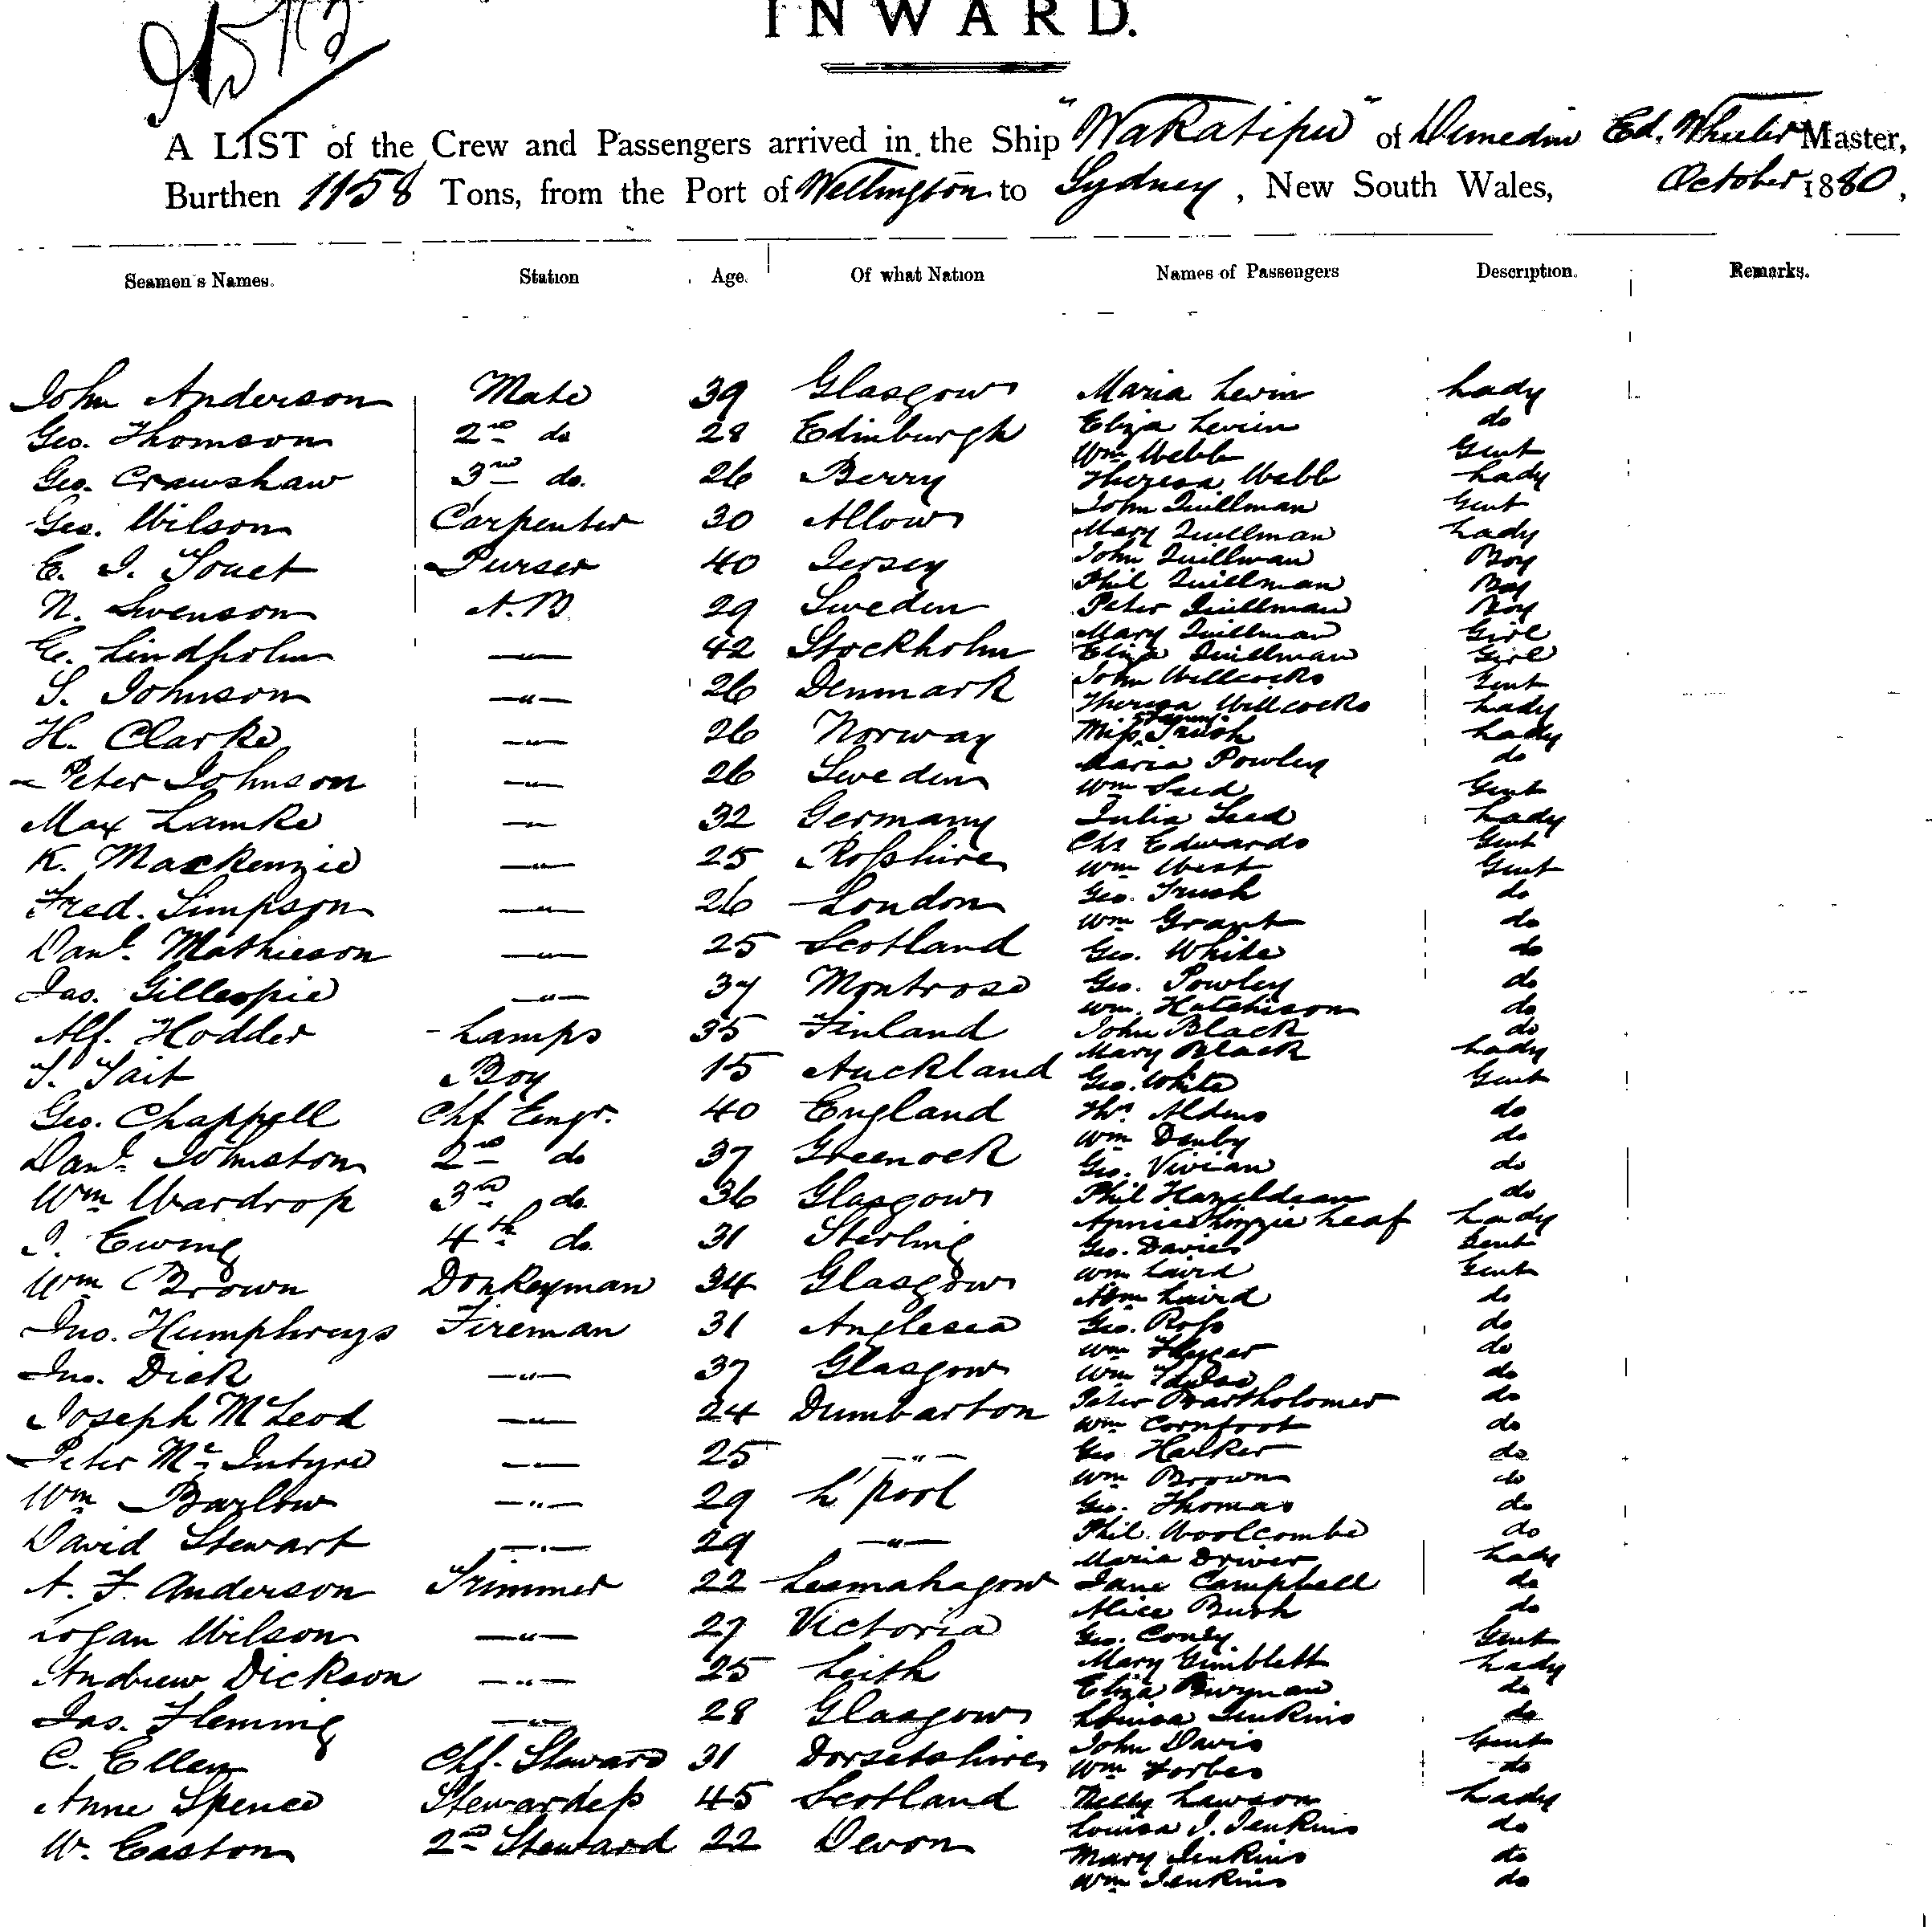 INWARD.
A LIST of the Crew and Passengers arrived in the Ship "Wakatipu" of Dunedin Ed. Wheeler Master,
Burthen 1158 Tons, from the Port of Wellington to Sydney, New South Wales, October 1880,
Seamen's Names. Station Age. Of what Nation Names of Passengers Description. Remarks.
John Anderson Mate 39 Glasgow Maria Levin Lady
Geo. Thomson 2nd do 28 Edinburgh Eliza Levien do
Wm Webb Gent
Geo. Crawshaw 3rd do. 26 Berry Theresa Webb Lady
John Quillman Gent
Geo. Wilson Carpenter 30 Allow Mary Quillman Lady
John Quillman Boy
E. J. Touet Purser 40 Jersey Phil Quillman Boy
N. Swenson A.B. 29 Sweden Peter Quillman Boy
Mary Quillman Girl
G. Lindholm —"— 42 Stockholm Eliza Quillman Girl
John Willcocks Gent
S. Johnson —"— 26 Denmark Theresa Willcocks Lady
H. Clarke —"— 26 Norway Miss Trush Lady
Maria Powley do
Peter Johnson —"— 26 Sweden Wm Seed Gent
Max Lamke —"— 32 Germany Julia Seed Lady
Chs Edwards Gent
K. Mackenzie —"— 25 Rosshire Wm West Gent
Fred. Simpson —"— 26 London Geo. Trush do
Wm Grant do
Danl. Mathieson —"— 25 Scotland Geo. White do
Jas. Gillespie —"— 37 Montrose Geo. Powley do
Wm. Hutchison do
Alf. Hodder Lamps 35 Finland John Black do
Mary Black Lady
T. Tait Boy 15 Auckland Geo. White Gent
Geo. Chappell Chf Engr. 40 England Thos. Aldens do
Wm Danby do
Danl. Johnston 2nd do 37 Greenock Geo. Vivian do
Wm Wardrop 3rd do. 36 Glasgow Phil Hazeldean do
Annie Lizzie Leaf Lady
J. Ewing 4th do. 31 Sterling Geo. Davies Gent
Wm Brown Donkeyman 34 Glasgow Wm Laird Gent
Laird do
Jno. Humphreys Fireman 31 Anglesea Geo. Ross do
Wm do
Jno. Dick —"— 37 Glasgow Wm do
Joseph McLeod —"— 24 Dumbarton Peter Bartholomew do
Wm Cornfoot do
Peter Mc Intyre —"— 25 —"— Geo Harker do
Wm Barlow —"— 29 L'pool Wm Brown do
Geo. Thomas do
David Stewart —"— 29 —"— Phil. Woolcombe do
Maria Driver Lady
A. F. Anderson Trimmer 22 Lesmahagow Jane Campbell do
Alice Bush do
Logan Wilson —"— 27 Victoria Geo. Conly. Gent
Andrew Dickson —"— 25 Leith Mary Gimblett Lady
Eliza do
Jas. Fleming —"— 28 Glasgow Louisa Jenkins do
John Davis Gent
C. Ellen Chf. Steward 31 Dorsetshire Wm Forbes do
Anne Spence Stewardess 45 Scotland Nelly Lawson Lady
Louisa J. Jenkins do
W. Easton 2nd Steward 22 Devon Mary Jenkins do
Wm Jenkins do